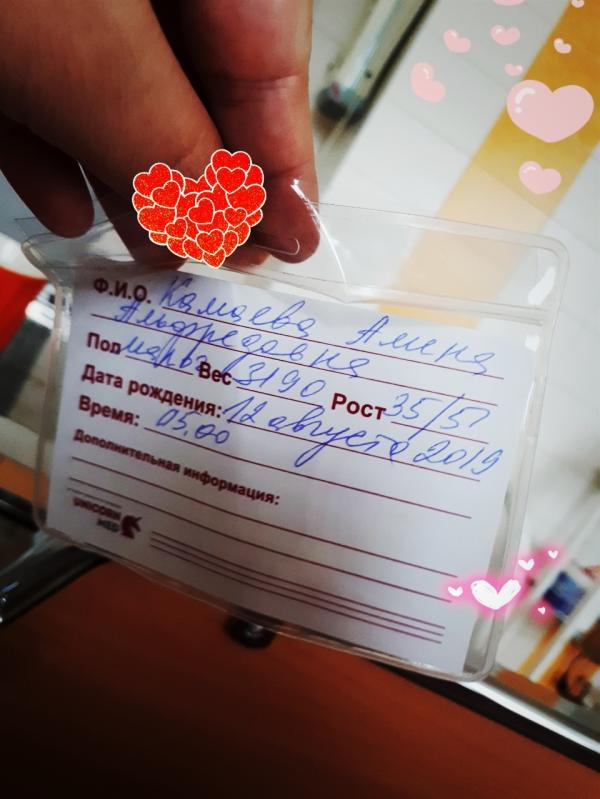 Ф.И.О. Камаева Алина
Альфредовна
Пол мальч Вес 3190 Рост 35/51
Дата рождения: 12 августа 2019
Время: 05.00
Дополнительная информация:
UNICORN
MED